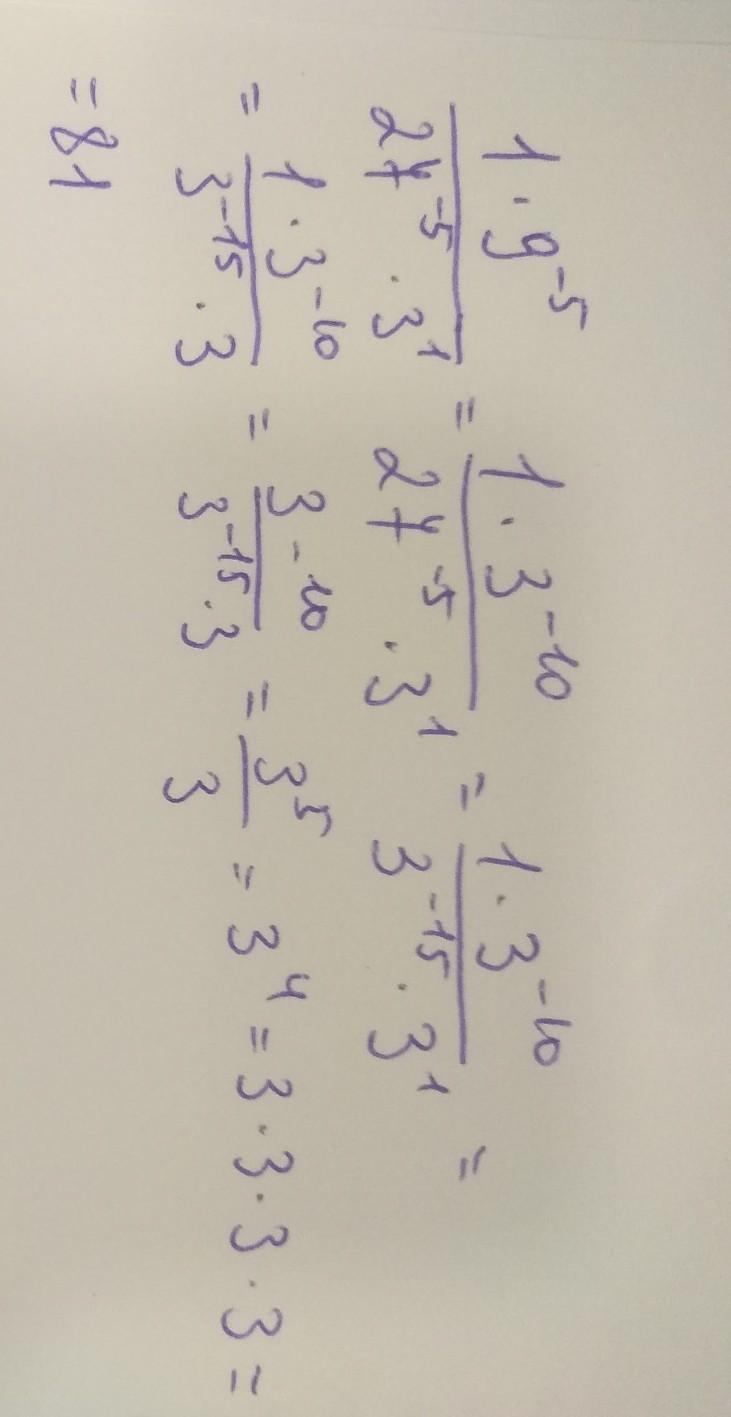 1 · 9⁻⁵ / 27⁻⁵ · 3¹ = 1 · 3⁻¹⁰ / 27⁻⁵ · 3¹ = 1 · 3⁻¹⁰ / 3⁻¹⁵ · 3¹ =
= 1 · 3⁻¹⁰ / 3⁻¹⁵ · 3 = 3⁻¹⁰ / 3⁻¹⁵ · 3 = 3⁵ / 3 = 3⁴ = 3 · 3 · 3 · 3 =
= 81